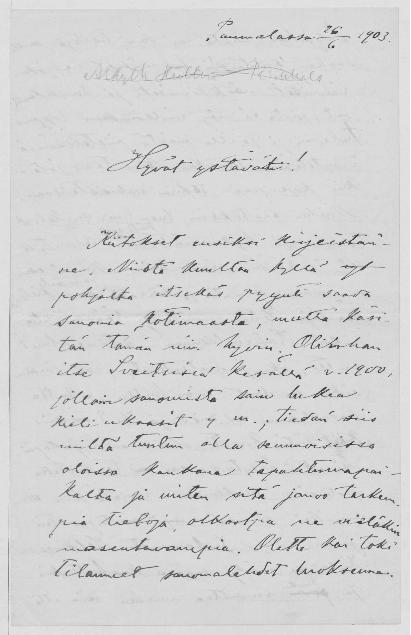 Puumalassa 26/6 1903.
Hyvät ystäväni!
Kiitokset ensiksi kirjeistän-
ne. Niistä kuultaa kyllä nyt
pohjalta itsekäs pyyntö saada
sanomia kotimaasta, mutta käsi-
tän tämän niin hyvin. Olinhan
itse Sveitsissä kesällä v. 1900,
jolloin sanomista sain lukea
kieliukaasit y. m., tiedän siis
miltä tuntuu olla semmoisissa
oloissa kaukana tapahtumapai-
kalta ja miten sitä janoo tarkem-
pia tietoja, olkootpa ne vieläkin
masentavampia. Olette kai toki
tilanneet sanomalehdet luoksenne.